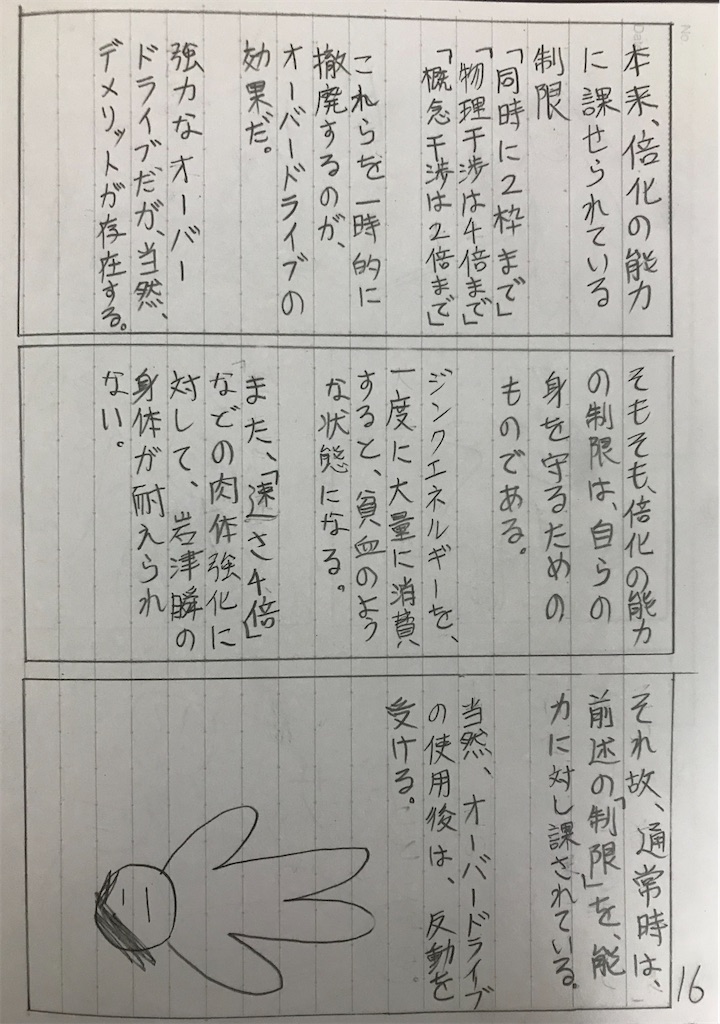 本来、倍化の能力
に課せられている
制限
「同時に2枠まで」
「物理干渉は4倍まで」
「概念干渉は2倍まで」
これらを一時的に
撤廃するのが、
オーバードライブの
効果だ。
強力なオーバー
ドライブだが、当然、
デメリットが存在する。
そもそも、倍化の能力
の制限は、自らの
身を守るための
ものである。
ジンクエネルギーを、
一度に大量に消費
すると、貧血のよう
な状態になる。
また、「速さ4倍」
などの肉体強化に
対して、岩津瞬の
身体が耐えられ
ない。
それ故、通常時は、
前述の「制限」を、能
力に対し課されている。
当然、オーバードライブ
の使用後は、反動を
受ける。
16
No
Da